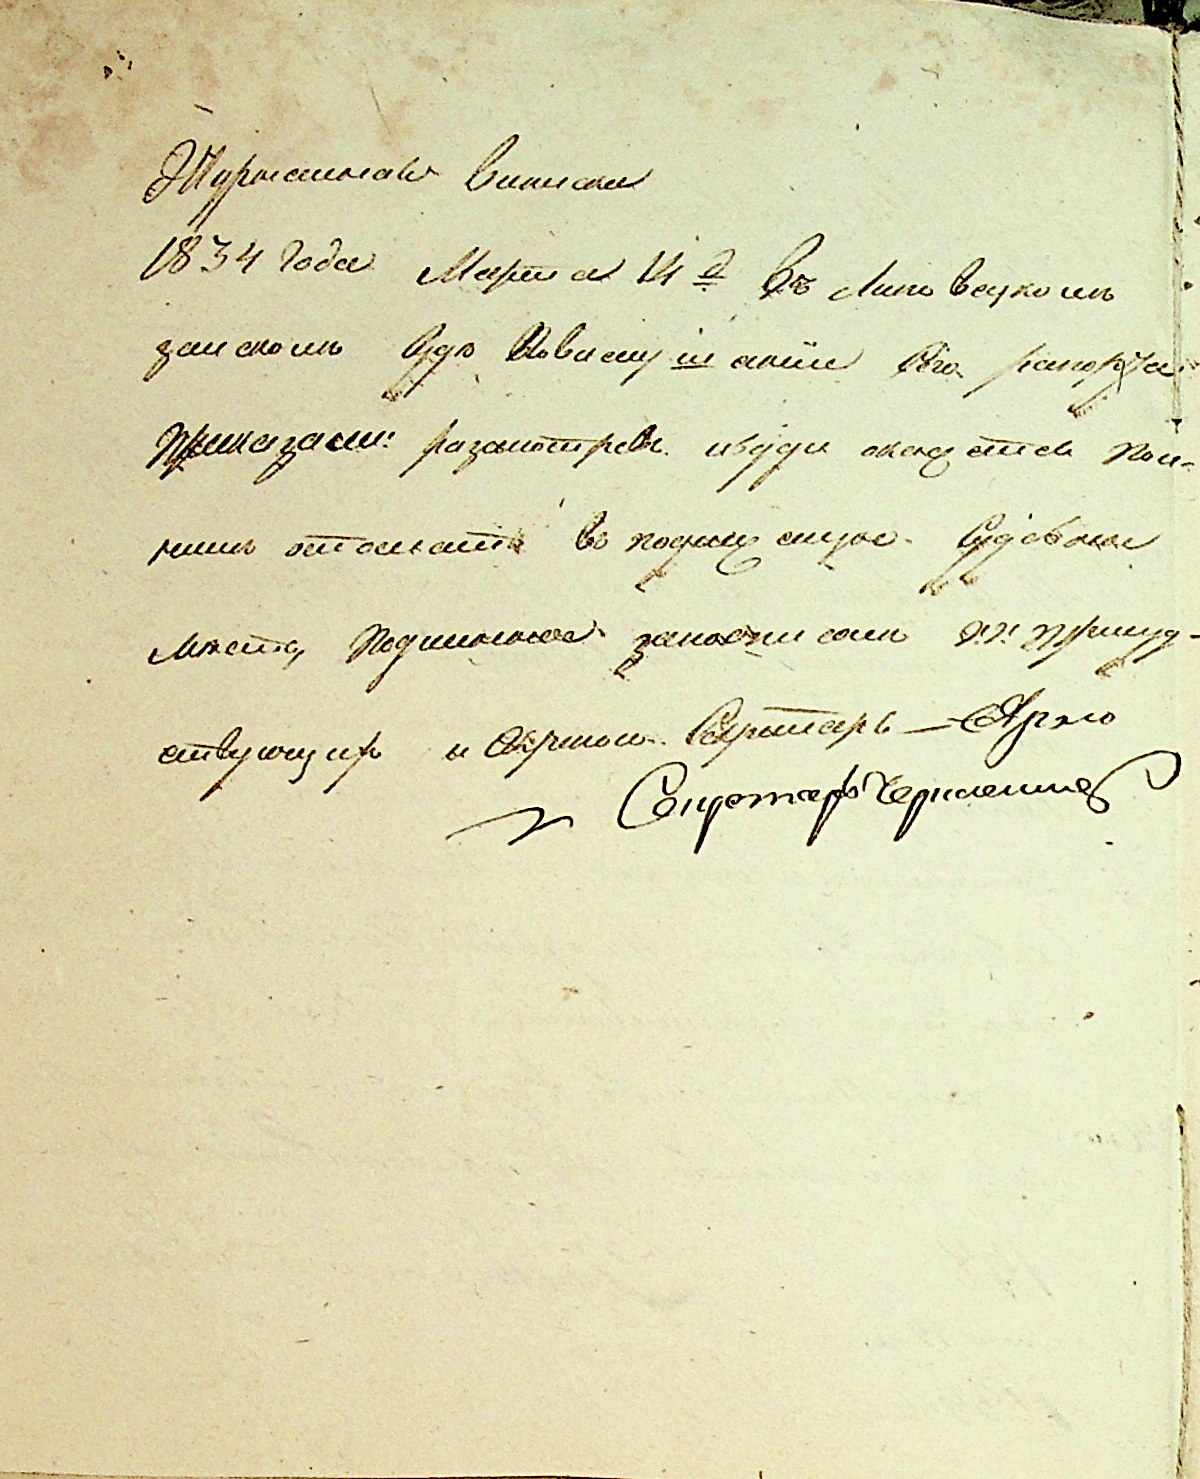 Журнальная выписка
1834 года Марта 14 д Въ Липовецкомъ
земскомъ Суде По выслушаніи сего рапорта
Приказали: разсмотреть и буде окажется пол-
нымъ отослать въ подлежащее Судебное
место, Подлинное за подписомъ гг: присуд-
ствующихъ и скрепою Секретаря
Секретарь